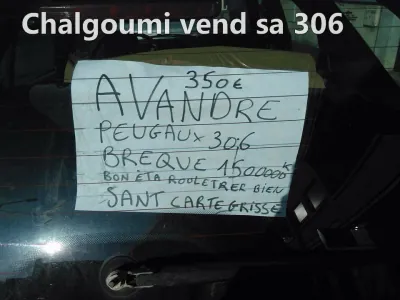 Chalgoumi vend sa 306
350€
AVANDRE
PEUGAUX 306
BREQUE 1500000K
BON ETA ROULETRER BIEN
SANT CARTE GRISSE